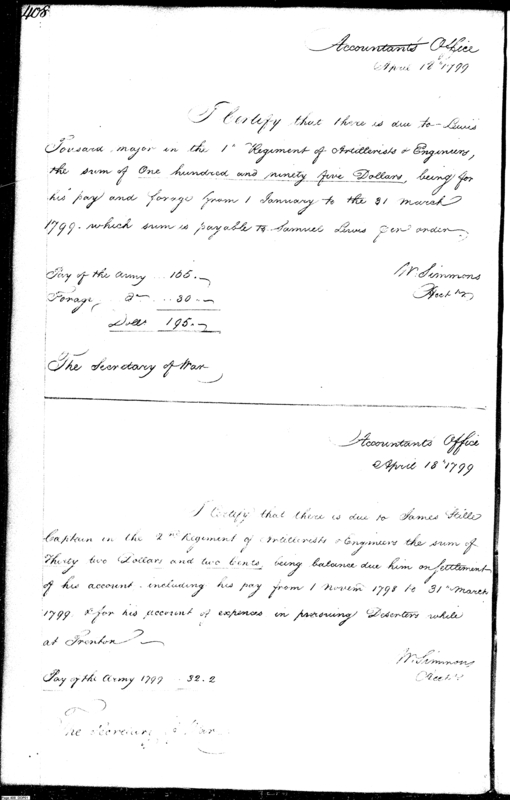 408
Accountants Office
April 18th 1799
I Certify that there is due to Lewis
Tousard major in the 1st Regiment of Artillerists & Engineers,
the sum of One hundred and ninety five Dollars, being for
his pay and forage from 1 January to the 31 March
1799. which sum is payable to Samuel Lewis per order
W Simmons
Acct
Pay of the Army 165.
Forage, Do 30
Dolls 195.
The Secretary of War
Accountants Office
April 18th 1799
I Certify that there is due to James Stille
Captain in the 2nd Regiment of Artillerists & Engineers the sum of
Thirty two Dollars and two Cents, being balance due him on settlement
of his account including his pay from 1 Novem 1798 to 31st March
1799 & for his account of expences in pursuing Deserters while
at Trenton
W Simmons
Acct
Pay of the Army 1799 32.2
The Secretary of War